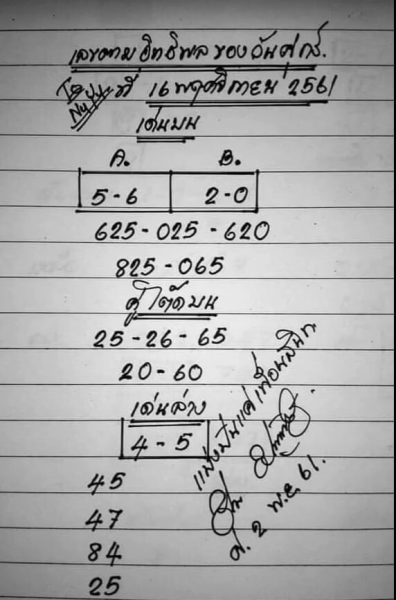 เลขตามอิทธิพลของวันศุกร์.
ที่ 16 พฤศจิกายน 2561
เด่นบน
A. B.
5-6 2-0
625-025-620
825-065
คู่โต๊ดบน
25-26-65
20-60
เด่นล่าง
4-5
45
47
84
25
แบ่งปันแค่เพื่อนสนิท
ศ. 2 พ.ย 61.